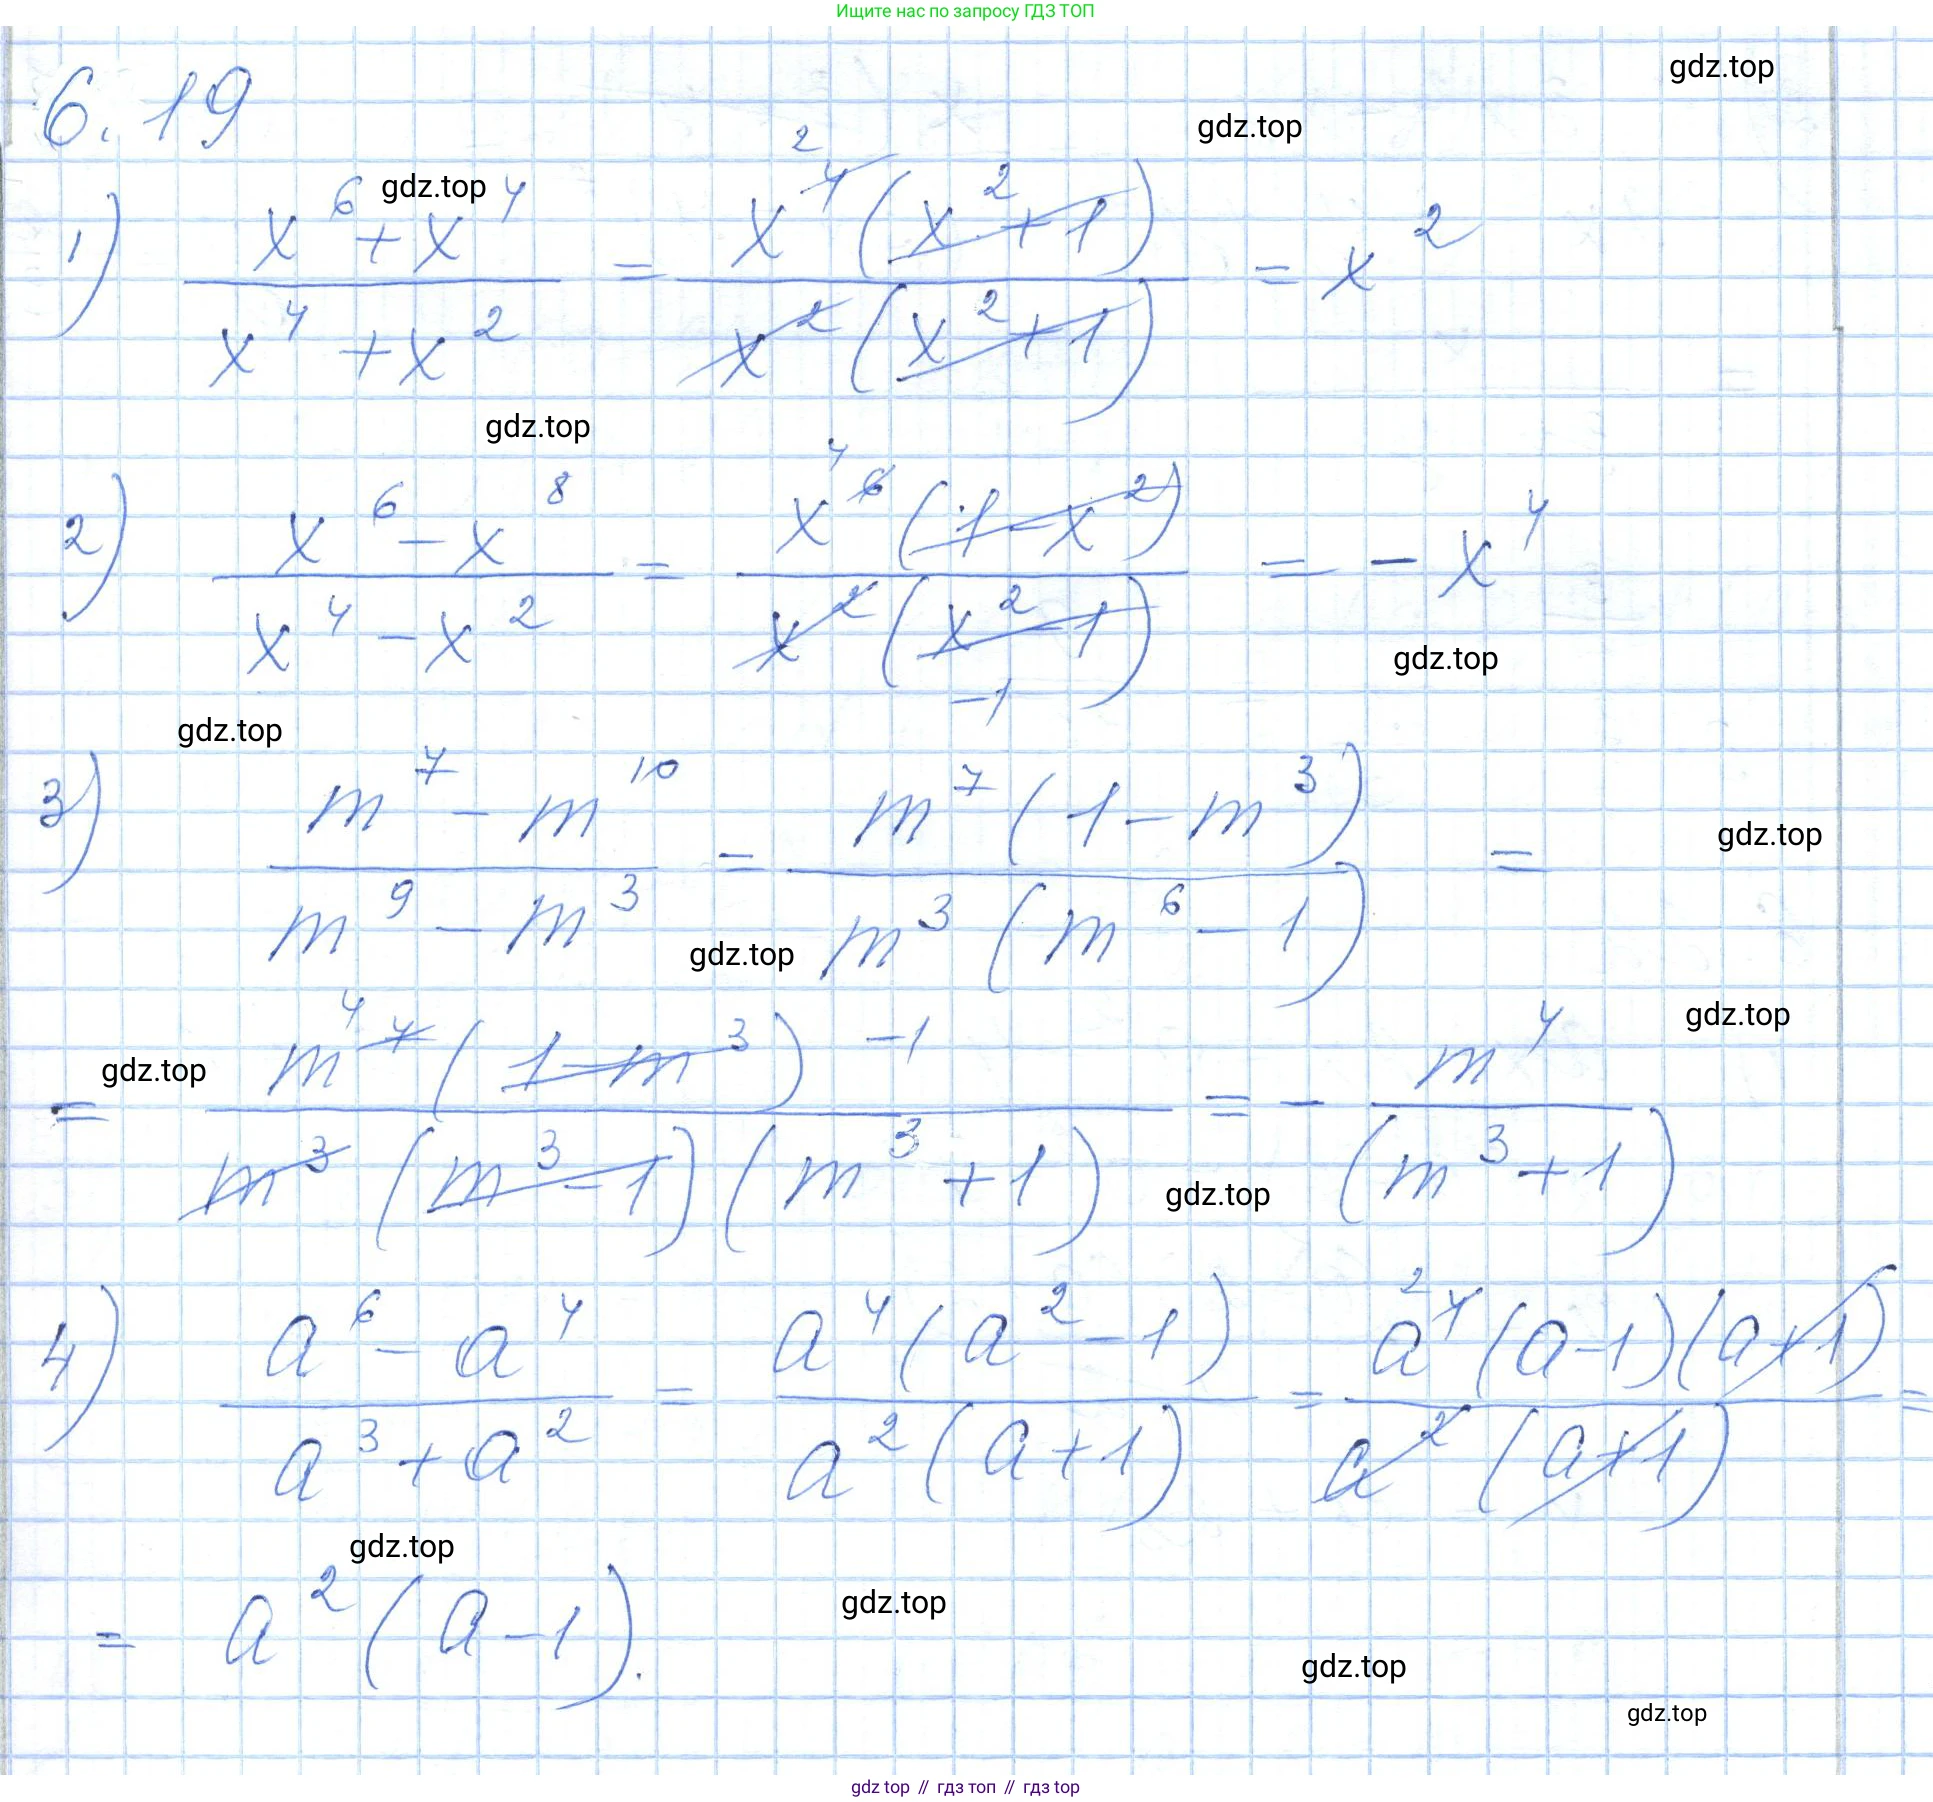 Ищите нас по запросу ГДЗ ТОП
gdz.top
6.19
gdz.top
gdz.top
1) \frac{x^6 + x^4}{x^4 + x^2} = \frac{x^{4 2}(x^2 + 1)}{x^2(x^2 + 1)} = x^2
gdz.top
2) \frac{x^6 - x^8}{x^4 - x^2} = \frac{x^{6 4}(1 - x^2)}{x^2(x^2 - 1) -1} = - x^4
gdz.top
gdz.top
3) \frac{m^7 - m^{10}}{m^9 - m^3} = \frac{m^7(1 - m^3)}{m^3(m^6 - 1)} =
gdz.top
gdz.top
gdz.top
gdz.top
= \frac{m^{7 4}(1 - m^3) -1}{m^3(m^3 - 1)(m^3 + 1)} = - \frac{m^4}{(m^3 + 1)}
gdz.top
4) \frac{a^6 - a^4}{a^3 + a^2} = \frac{a^4(a^2 - 1)}{a^2(a + 1)} = \frac{a^{4 2}(a - 1)(a + 1)}{a^2(a + 1)} =
gdz.top
= a^2(a - 1).
gdz.top
gdz.top
gdz.top
gdz top // гдз топ // gdz top